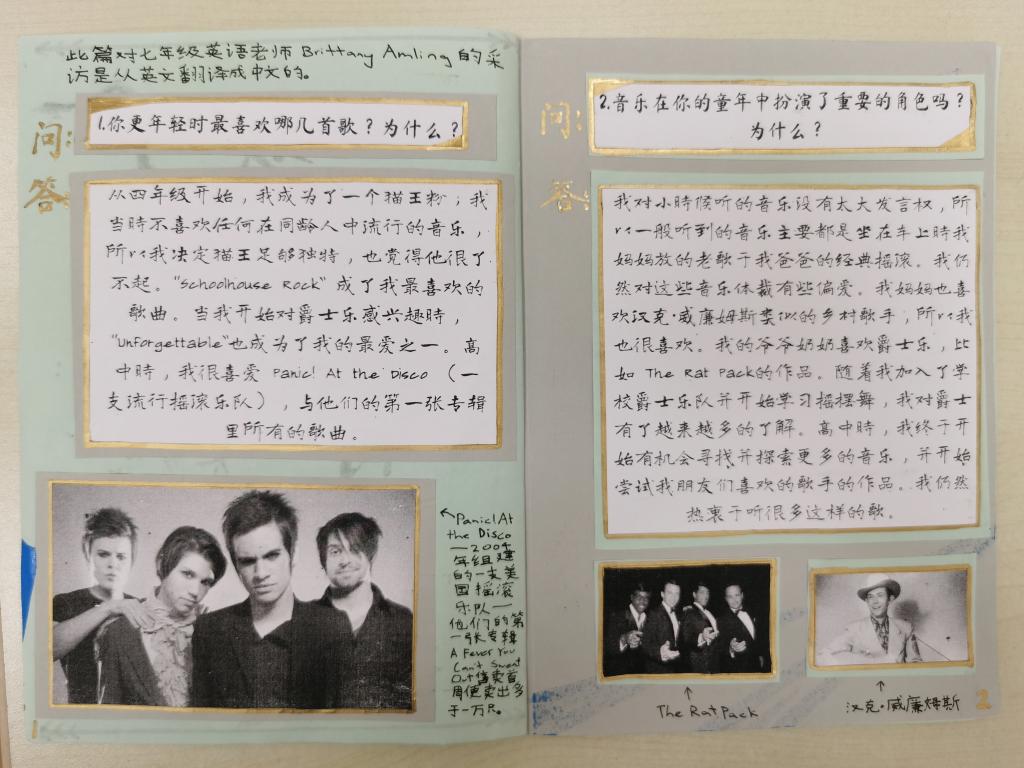 此篇对七年级英语老师 Brittany Amling 的采
访是从英文翻译成中文的。
问:
1.你更年轻时最喜欢哪几首歌？为什么？
答:
从四年级开始，我成为了一个猫王粉；我
当時不喜欢任何在同龄人中流行的音乐，
所以我决定猫王足够独特，也觉得他很了
不起。"Schoolhouse Rock" 成了我最喜欢的
歌曲。当我开始对爵士乐感兴趣時，
"Unforgettable"也成为了我的最爱之一。高
中時，我很喜爱 Panic! At the Disco （一
支流行摇滚乐队），与他们的第一张专辑
里所有的歌曲。
←Panic! At
the Disco
—2004
年组建
的一支美
国摇滚
乐队—
他们的第
一张专辑
A Fever You
Can't Sweat
Out售卖首
周便卖出多
于一万只。
1
问:
2.音乐在你的童年中扮演了重要的角色吗？
为什么？
答:
我对小時候听的音乐没有太大发言权，所
以一般听到的音乐主要都是坐在车上時我
妈妈放的老歌于我爸爸的经典摇滚。我仍
然对这些音乐体裁有些偏爱。我妈妈也喜
欢汉克·威廉姆斯类似的乡村歌手，所以我
也很喜欢。我的爷爷奶奶喜欢爵士乐，比
如 The Rat Pack的作品。随着我加入了学
校爵士乐队并开始学习摇摆舞，我对爵士
有了越来越多的了解。高中時，我终于开
始有机会寻找并探索更多的音乐，并开始
尝试我朋友们喜欢的歌手的作品。我仍然
热衷于听很多这样的歌。
↑
The Rat Pack
↑
汉克·威廉姆斯
2